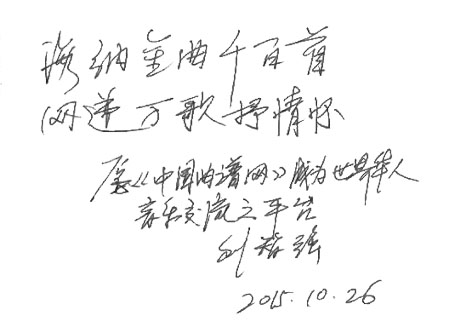 海纳金曲千百首
网递万歌抒情怀
愿《中国曲谱网》成为世界华人
音乐交流之平台
刘智强
2015.10.26